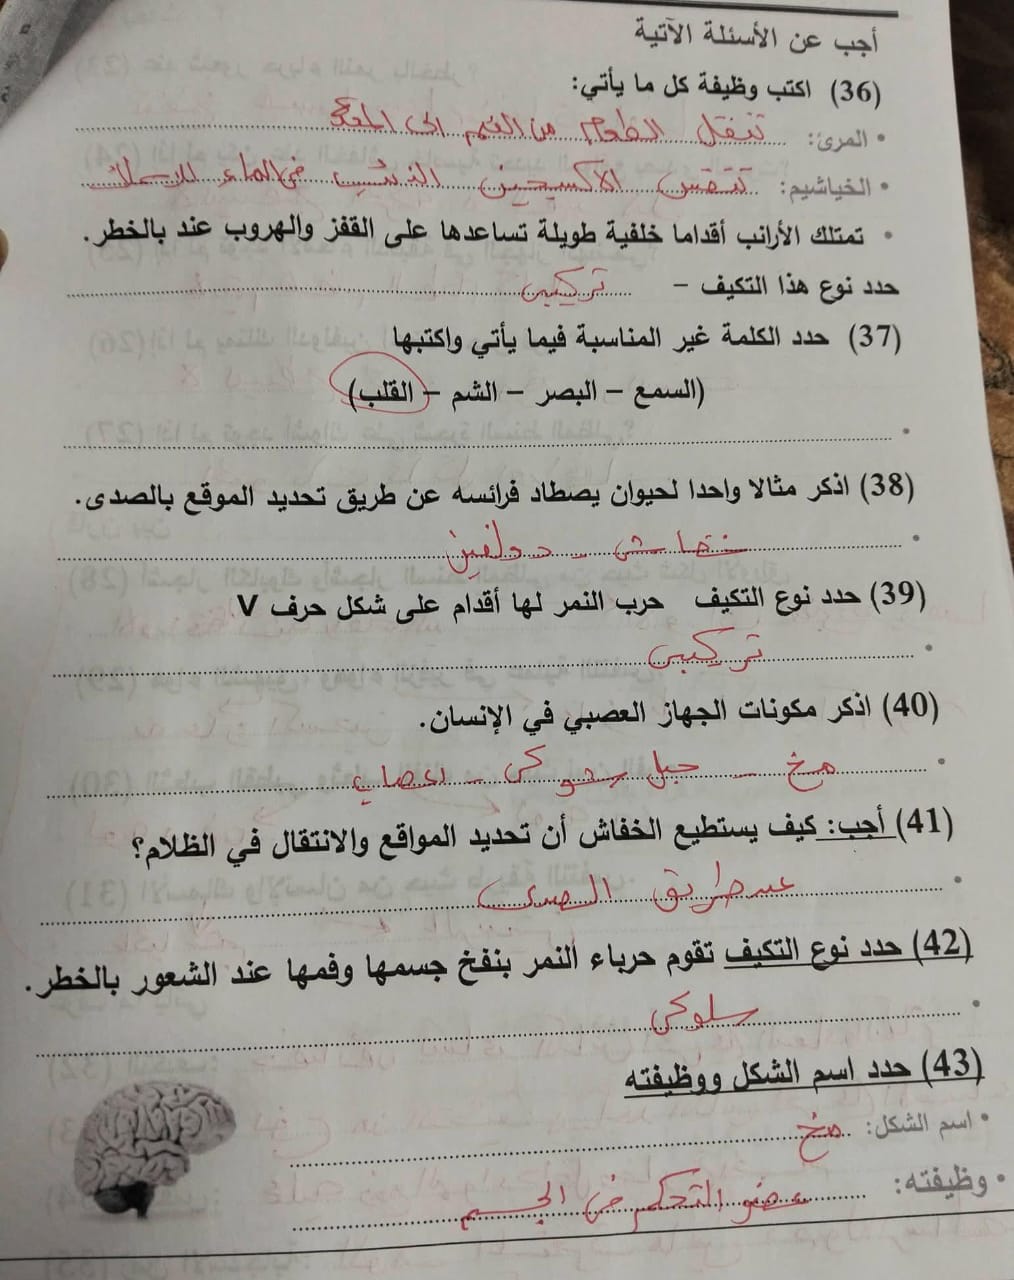 أجب عن الأسئلة الآتية
(36) اكتب وظيفة كل ما يأتي:
• المرئ: تنقل الطعام من الفم الى المعدة
• الخياشيم: تتنفس الأكسيجين الذائب في الماء للاسماك
• تمتلك الأرانب أقداما خلفية طويلة تساعدها على القفز والهروب عند بالخطر.
حدد نوع هذا التكيف – تركيبي
(37) حدد الكلمة غير المناسبة فيما يأتي واكتبها
(السمع – البصر – الشم – القلب)
(38) اذكر مثالا واحدا لحيوان يصطاد فرائسه عن طريق تحديد الموقع بالصدى.
خفاش - دولفين
(39) حدد نوع التكيف حرب النمر لها أقدام على شكل حرف V
تركيبي
(40) اذكر مكونات الجهاز العصبي في الإنسان.
مخ - حبل شوكي - اعصاب
(41) أجب: كيف يستطيع الخفاش أن تحديد المواقع والانتقال في الظلام؟
عن طريق الصدى
(42) حدد نوع التكيف تقوم حرباء النمر بنفخ جسمها وفمها عند الشعور بالخطر.
سلوكي
(43) حدد اسم الشكل ووظيفته
• اسم الشكل: مخ
• وظيفته: عضو التحكم في الجسم